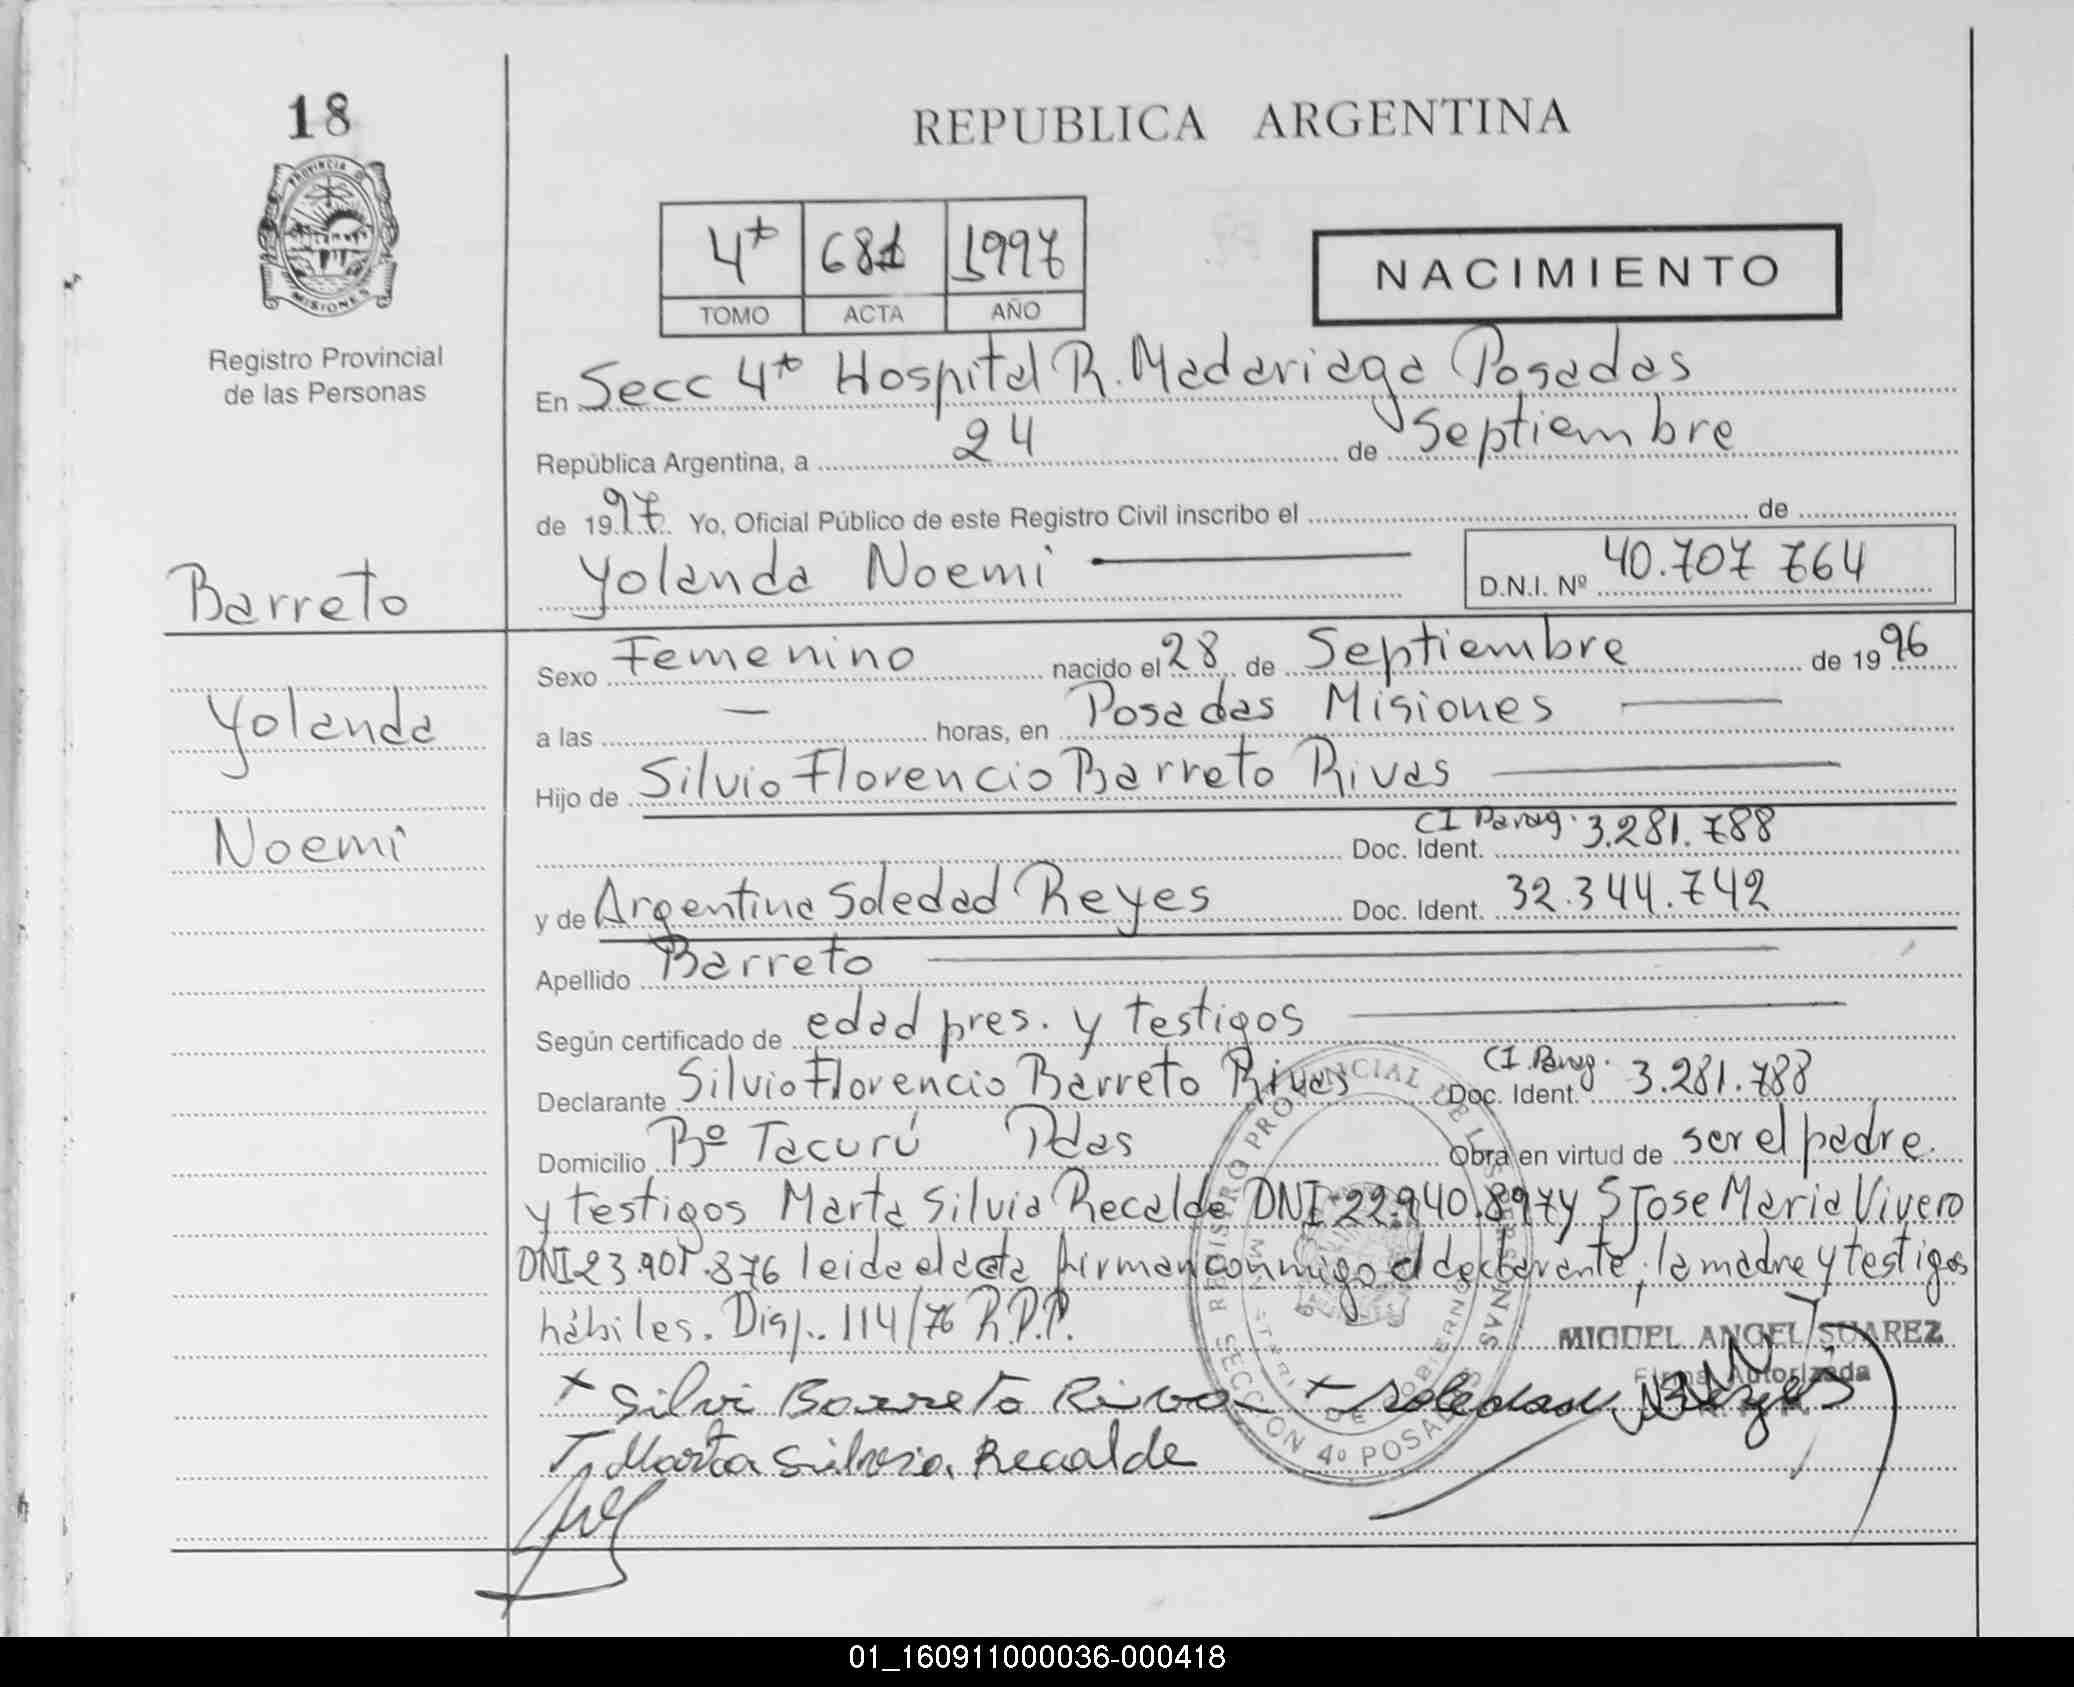 18
PROVINCIA D
MISIONES
Registro Provincial
de las Personas
REPUBLICA ARGENTINA
4ta 681 1997
TOMO ACTA AÑO
NACIMIENTO
En Secc 4ta Hospital R. Madariaga Posadas
República Argentina, a 24 de Septiembre
de 1997 Yo, Oficial Público de este Registro Civil inscribo el de
Barreto
Yolanda Noemi
D.N.I. Nº 40.707 764
Yolanda
Noemi
Sexo Femenino nacido el 28 de Septiembre de 1996
a las — horas, en Posadas Misiones
Hijo de Silvio Florencio Barreto Rivas
Doc. Ident. CI Parag. 3.281.788
y de Argentina Soledad Reyes Doc. Ident. 32.344.742
Apellido Barreto
Según certificado de edad pres. y testigos
Declarante Silvio Florencio Barreto Rivas Doc. Ident. CI Parag. 3.281.788
Domicilio Bº Tacurú Pdas Obra en virtud de ser el padre.
y testigos Marta Silvia Recalde DNI 22.940.897 y Jose Maria Vivero
DNI 23.901.876 leida el acta firman conmigo el declarante, la madre y testigos
hábiles. Disp. 114/76 R.P.P.
MIGUEL ANGEL SUAREZ
Firma Autorizada
REGISTRO PROVINCIAL DE LAS PERSONAS
SECCION 4º POSADAS
x Silvi Barreto Rivas x Soledad Reyes
Marta Silvia Recalde
01_160911000036-000418